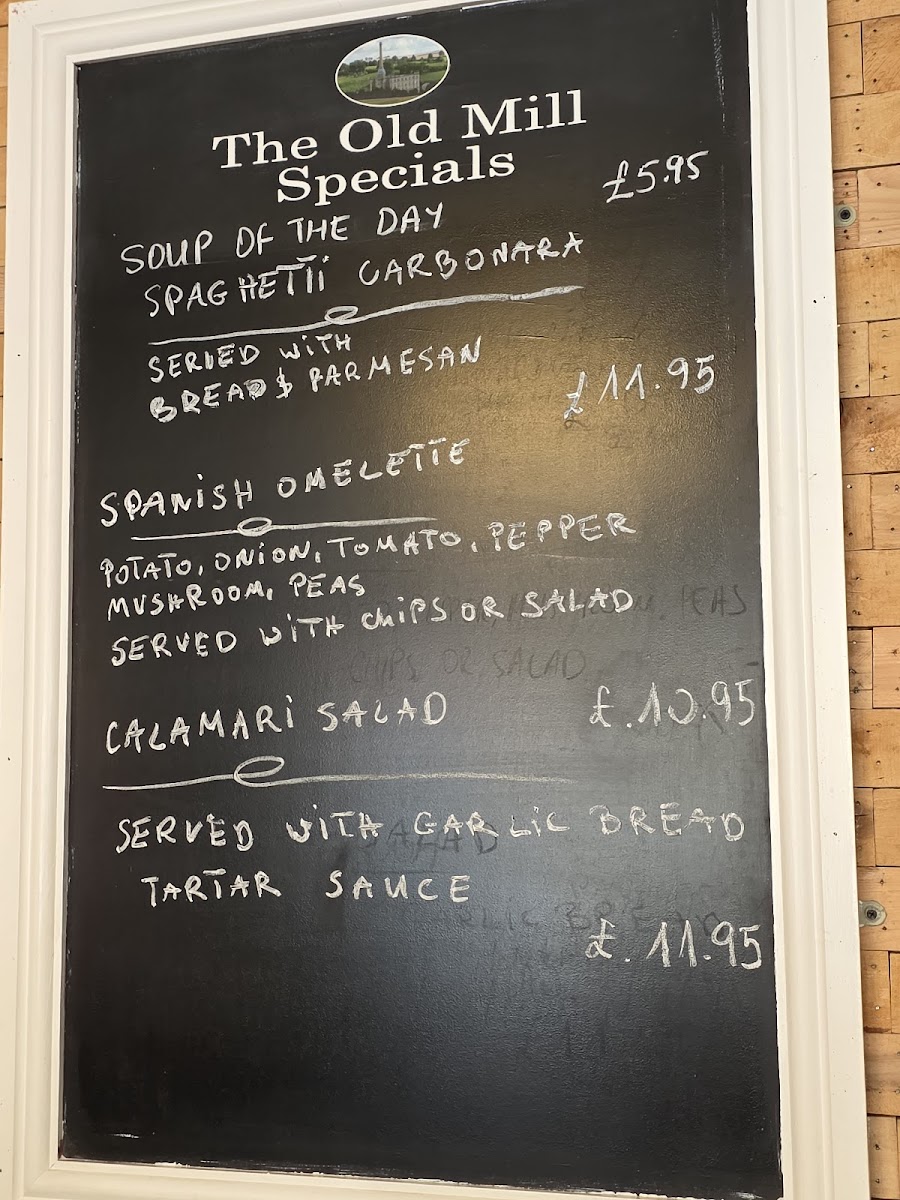 The Old Mill
Specials
SOUP OF THE DAY £5.95
SPAGHETTI CARBONARA
SERVED WITH
BREAD & PARMESAN
£11.95
SPANISH OMELETTE
POTATO, ONION, TOMATO, PEPPER
MUSHROOM, PEAS
SERVED WITH CHIPS OR SALAD
£.10.95
CALAMARI SALAD
SERVED WITH GARLIC BREAD
TARTAR SAUCE
£.11.95